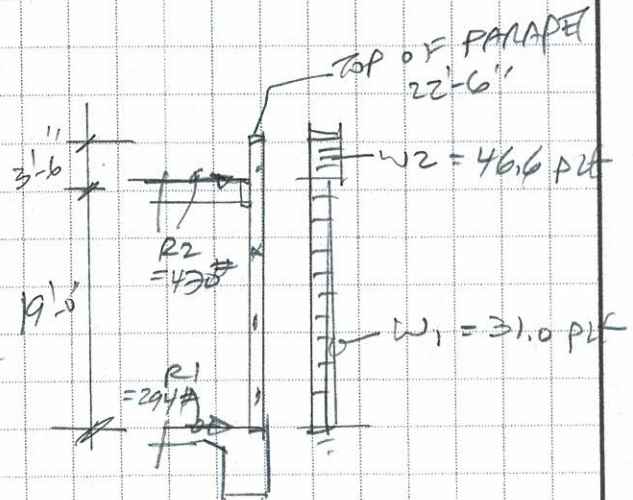 TOP OF PARAPET
22'-6"
3'-6"
W2 = 46.6 PLF
R2
19'-0"
W1 = 31.0 PLF
R1
=294#